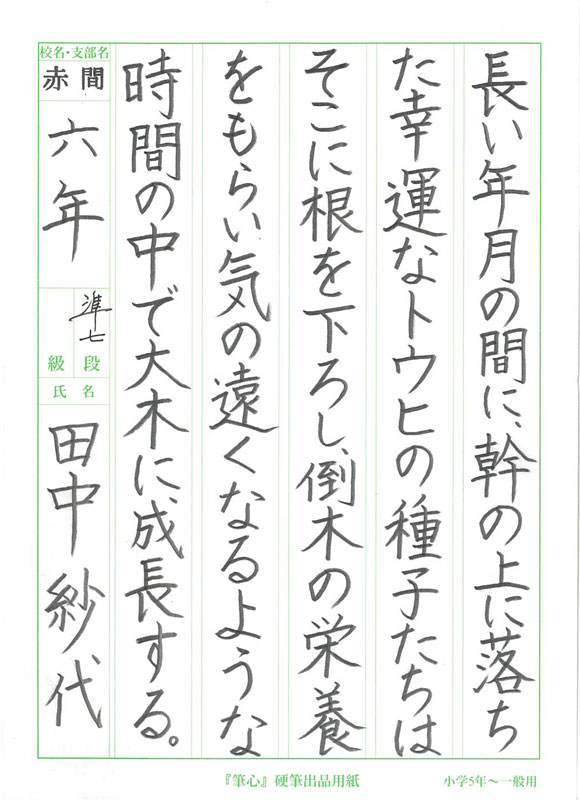 長い年月の間に、幹の上に落ち
た幸運なトウヒの種子たちは
そこに根を下ろし、倒木の栄養
をもらい気の遠くなるような
時間の中で大木に、成長する。
校名・支部名
赤間
六年
準七
段
級
氏名
田中紗代
『筆心』硬筆出品用紙
小学5年～一般用